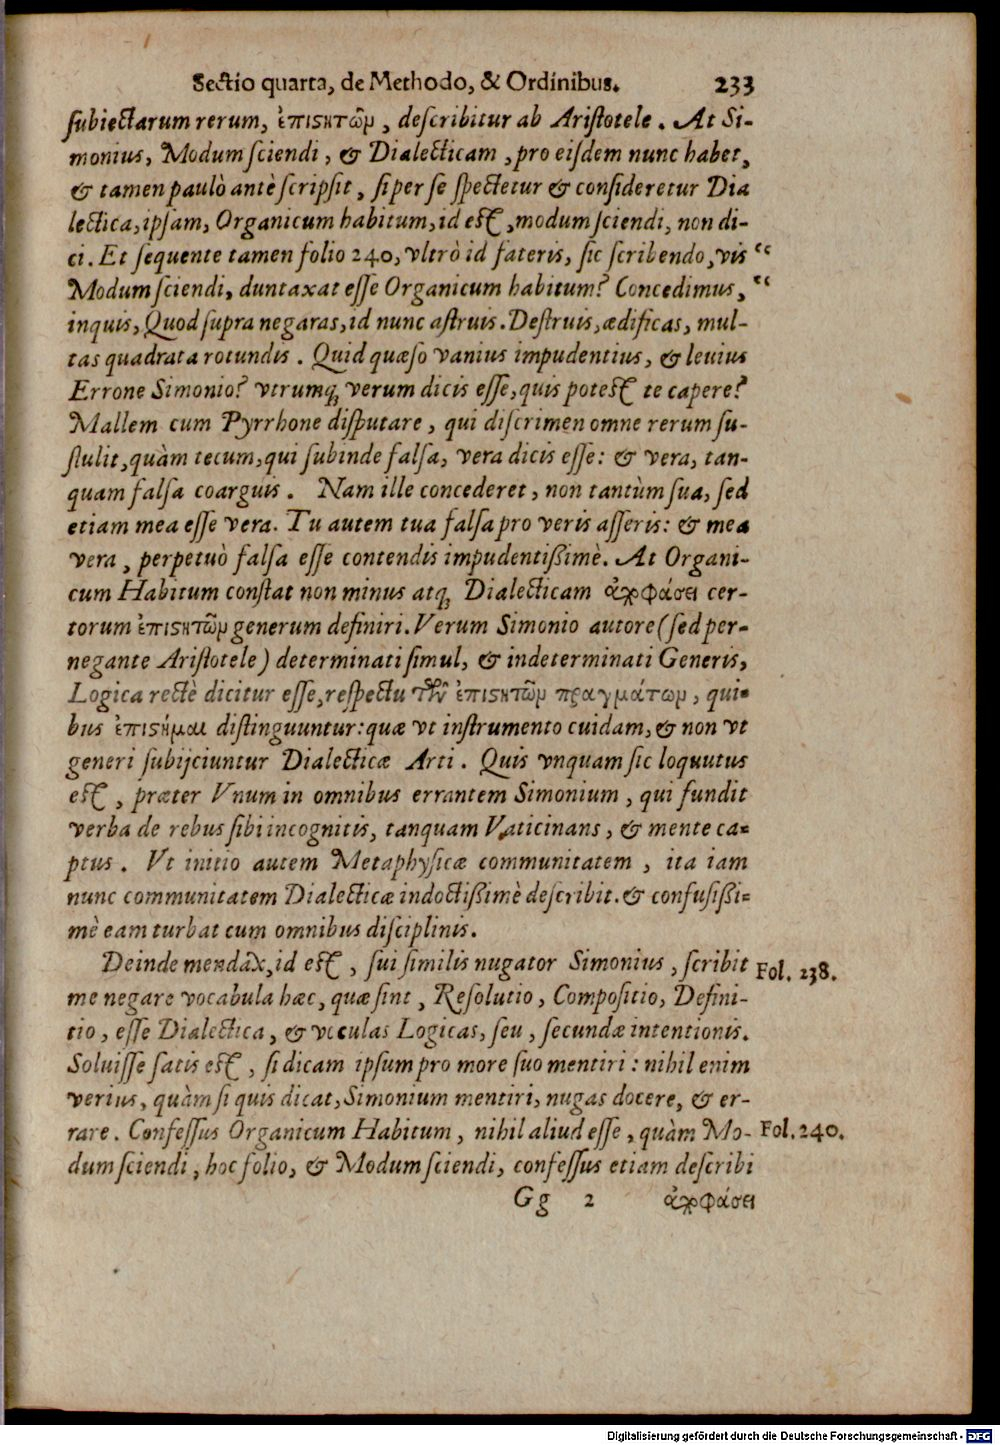 Sectio quarta, de Methodo, & Ordinibus. 233
ſubiectarum rerum, ἐπιϛητῶν, deſcribitur ab Ariſtotele. At Si-
monius, Modum ſciendi, & Dialecticam, pro eiſdem nunc habet,
& tamen paulò antè ſcripſit, ſi per ſe ſpectetur & conſideretur Dia
lectica, ipſam, Organicum habitum, id eſt, modum ſciendi, non di-
ci. Et ſequente tamen folio 240, vltrò id fateris, ſic ſcribendo, vis “
Modum ſciendi, duntaxat eſſe Organicum habitum? Concedimus, “
inquis, Quod ſupra negaras, id nunc aſtruis. Deſtruis, ædificas, mul-
tas quadrata rotundis. Quid quæſo vanius impudentius, & leuius
Errone Simonio? vtrumq; verum dicis eſſe, quis poteſt te capere?
Mallem cum Pyrrhone diſputare, qui diſcrimen omne rerum ſu-
ſtulit, quàm tecum, qui ſubinde falſa, vera dicis eſſe: & vera, tan-
quam falſa coarguis. Nam ille concederet, non tantùm ſua, ſed
etiam mea eſſe vera. Tu autem tua falſa pro veris aſſeris: & mea
vera, perpetuò falſa eſſe contendis impudentißimè. At Organi-
cum Habitum conſtat non minus atq; Dialecticam ἀποφάσει cer-
torum ἐπιϛητῶν generum definiri. Verum Simonio autore (ſed per-
negante Ariſtotele) determinati ſimul, & indeterminati Generis,
Logica rectè dicitur eſſe, reſpectu τῶν ἐπιϛητῶν πραγμάτων, qui-
bus ἐπιϛῆμαι diſtinguuntur: quæ vt inſtrumento cuidam, & non vt
generi ſubijciuntur Dialecticæ Arti. Quis vnquam ſic loquutus
eſt, præter Vnum in omnibus errantem Simonium, qui fundit
verba de rebus ſibi incognitis, tanquam Vaticinans, & mente ca-
ptus. Vt initio autem Metaphyſicæ communitatem, ita iam
nunc communitatem Dialecticæ indoctißimè deſcribit. & confuſißi-
mè eam turbat cum omnibus diſciplinis.
Deinde mendax, id eſt, ſui ſimilis nugator Simonius, ſcribit Fol. 238.
me negare vocabula hæc, quæ ſint, Reſolutio, Compoſitio, Defini-
tio, eſſe Dialectica, & voculas Logicas, ſeu, ſecundæ intentionis.
Soluiſſe ſatis eſt, ſi dicam ipſum pro more ſuo mentiri: nihil enim
verius, quàm ſi quis dicat, Simonium mentiri, nugas docere, & er-
rare. Confeſſus Organicum Habitum, nihil aliud eſſe, quàm Mo- Fol. 240.
dum ſciendi, hoc folio, & Modum ſciendi, confeſſus etiam deſcribi
Gg 2 ἀποφάσει
Digitalisierung gefördert durch die Deutsche Forschungsgemeinschaft - DFG